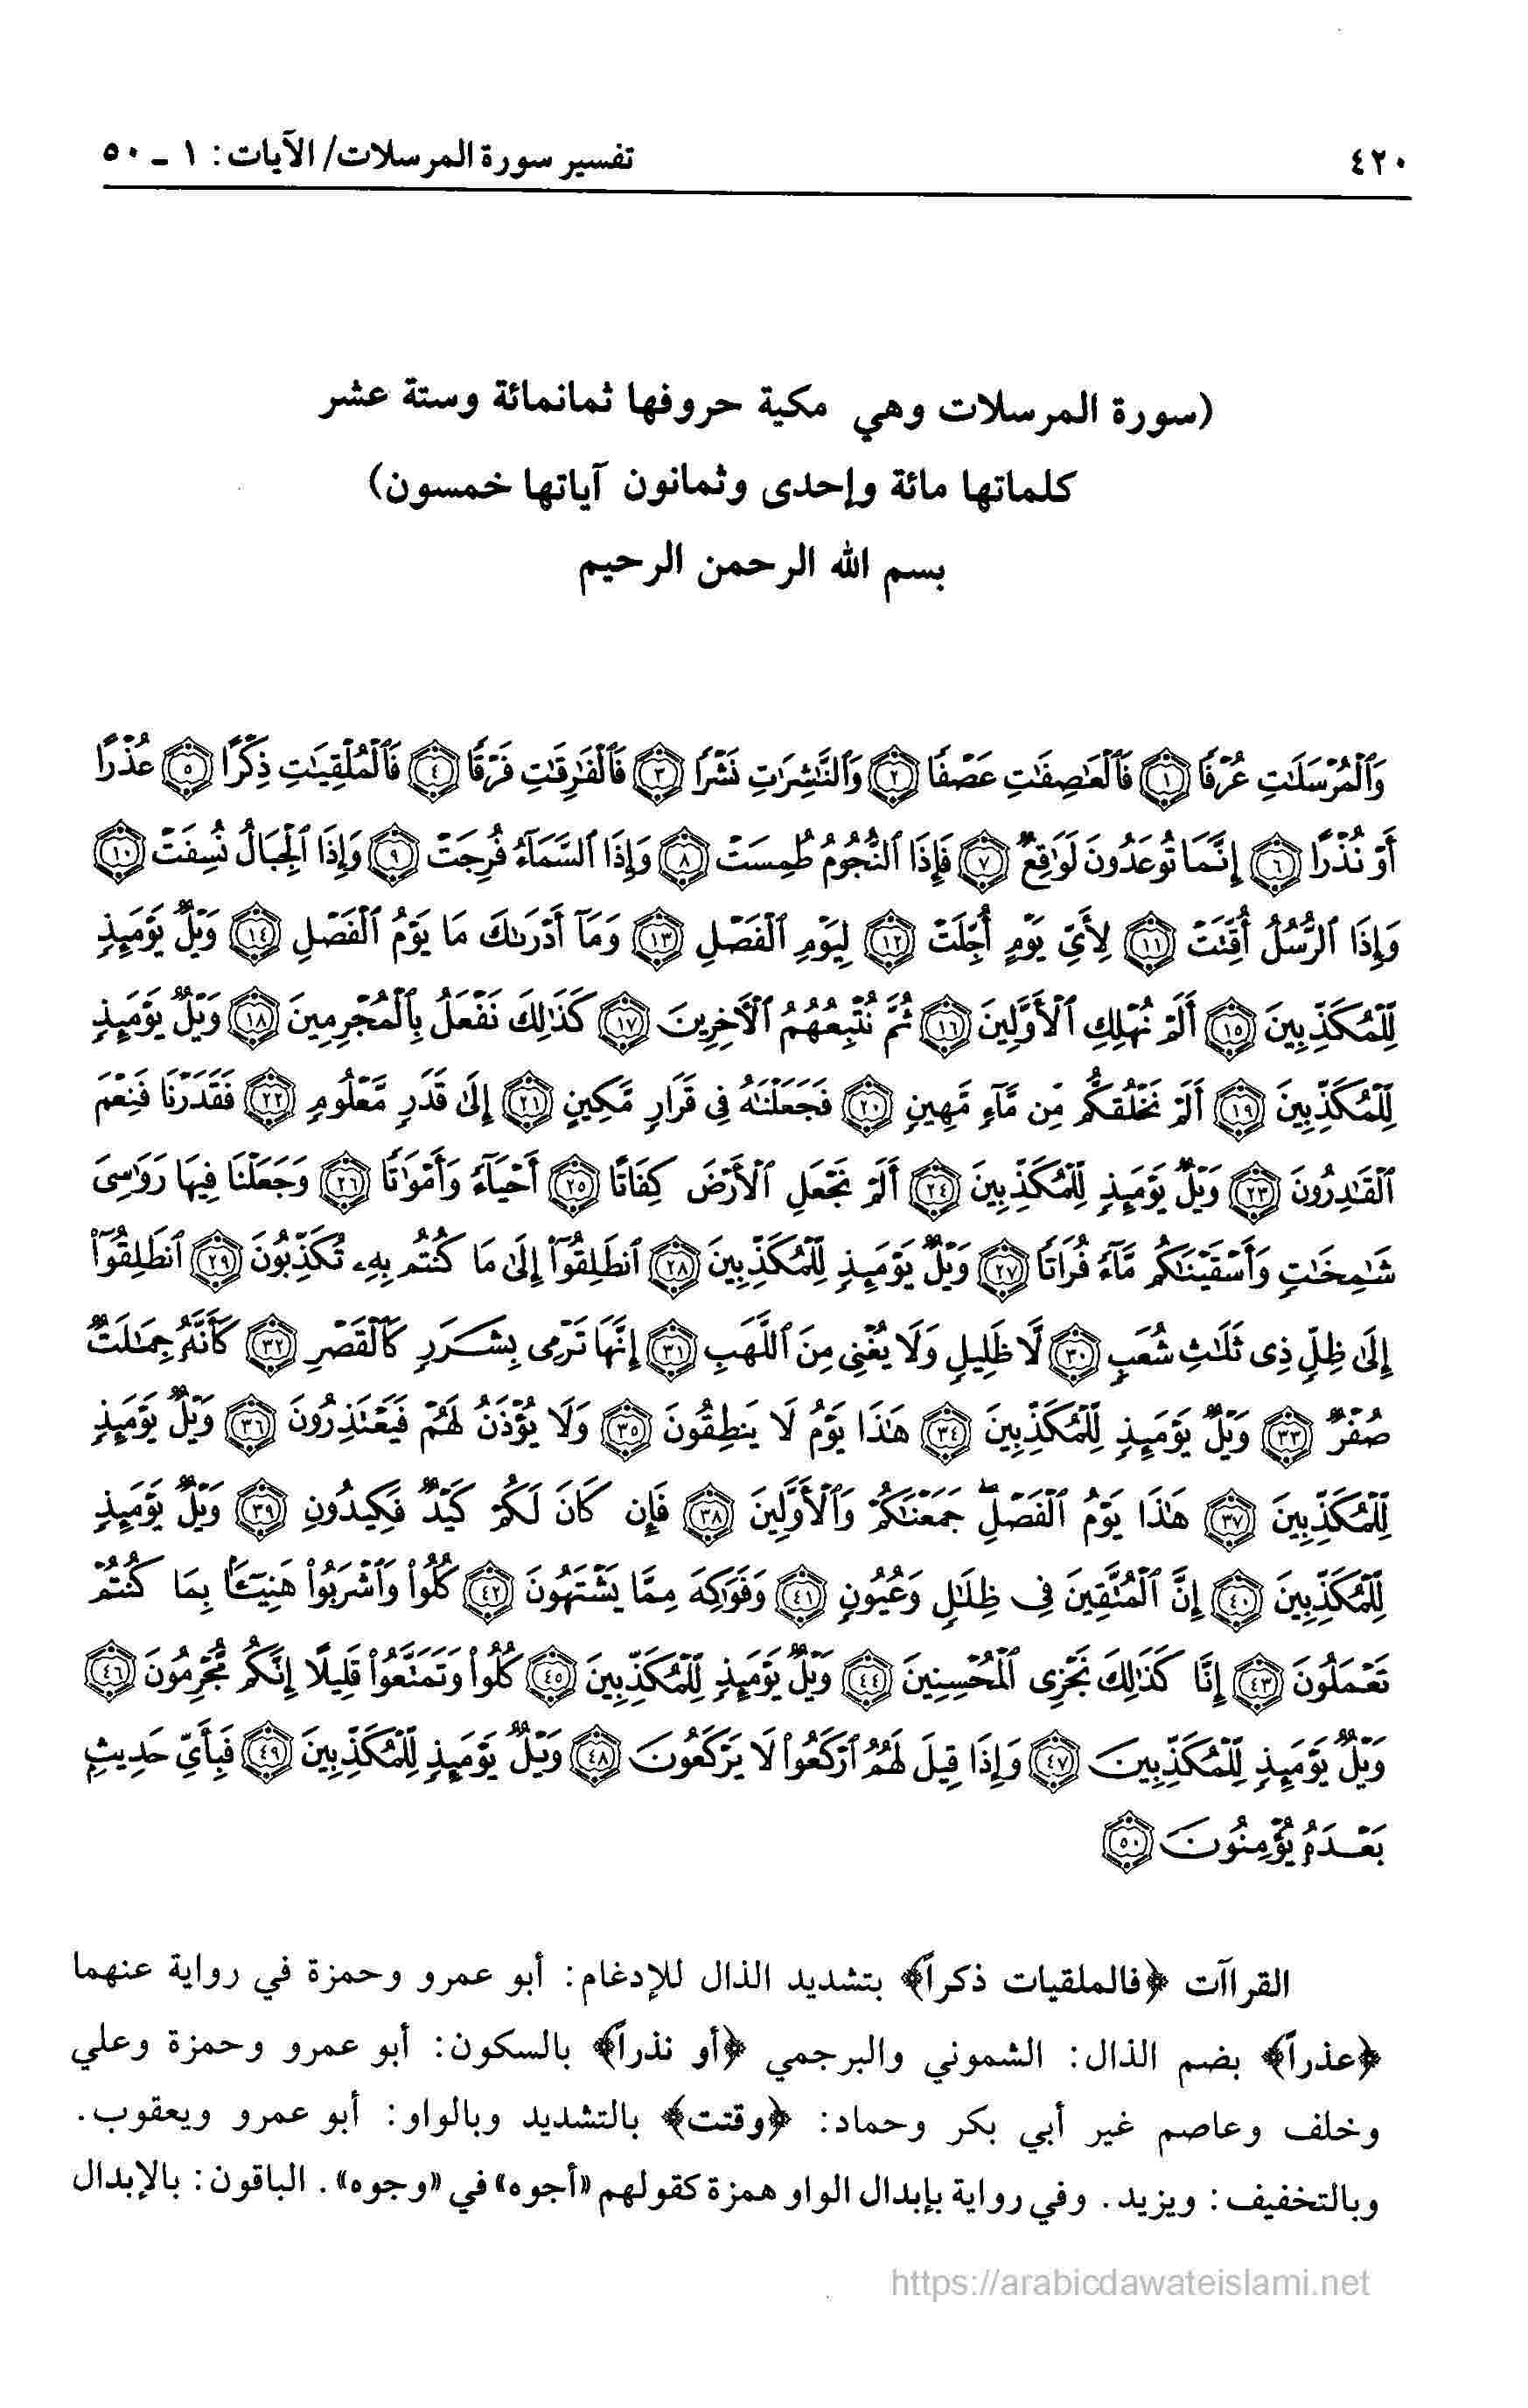 ٤٢٠ تفسير سورة المرسلات/ الآيات: ١ ـ ٥٠
(سورة المرسلات وهي مكية حروفها ثمانمائة وستة عشر
كلماتها مائة وإحدى وثمانون آياتها خمسون)
بسم الله الرحمن الرحيم
وَٱلْمُرْسَلَٰتِ عُرْفًا ١ فَٱلْعَٰصِفَٰتِ عَصْفًا ٢ وَٱلنَّٰشِرَٰتِ نَشْرًا ٣ فَٱلْفَٰرِقَٰتِ فَرْقًا ٤ فَٱلْمُلْقِيَٰتِ ذِكْرًا ٥ عُذْرًا
أَوْ نُذْرًا ٦ إِنَّمَا تُوعَدُونَ لَوَٰقِعٌ ٧ فَإِذَا ٱلنُّجُومُ طُمِسَتْ ٨ وَإِذَا ٱلسَّمَآءُ فُرِجَتْ ٩ وَإِذَا ٱلْجِبَالُ نُسِفَتْ ١٠
وَإِذَا ٱلرُّسُلُ أُقِّتَتْ ١١ لِأَيِّ يَوْمٍ أُجِّلَتْ ١٢ لِيَوْمِ ٱلْفَصْلِ ١٣ وَمَآ أَدْرَىٰكَ مَا يَوْمُ ٱلْفَصْلِ ١٤ وَيْلٌ يَوْمَئِذٍ
لِّلْمُكَذِّبِينَ ١٥ أَلَمْ نُهْلِكِ ٱلْأَوَّلِينَ ١٦ ثُمَّ نُتْبِعُهُمُ ٱلْأَخِرِينَ ١٧ كَذَٰلِكَ نَفْعَلُ بِٱلْمُجْرِمِينَ ١٨ وَيْلٌ يَوْمَئِذٍ
لِّلْمُكَذِّبِينَ ١٩ أَلَمْ نَخْلُقكُّم مِّن مَّآءٍ مَّهِينٍ ٢٠ فَجَعَلْنَٰهُ فِى قَرَارٍ مَّكِينٍ ٢١ إِلَىٰ قَدَرٍ مَّعْلُومٍ ٢٢ فَقَدَرْنَا فَنِعْمَ
ٱلْقَٰدِرُونَ ٢٣ وَيْلٌ يَوْمَئِذٍ لِّلْمُكَذِّبِينَ ٢٤ أَلَمْ نَجْعَلِ ٱلْأَرْضَ كِفَاتًا ٢٥ أَحْيَآءً وَأَمْوَٰتًا ٢٦ وَجَعَلْنَا فِيهَا رَوَٰسِىَ
شَٰمِخَٰتٍ وَأَسْقَيْنَٰكُم مَّآءً فُرَاتًا ٢٧ وَيْلٌ يَوْمَئِذٍ لِّلْمُكَذِّبِينَ ٢٨ ٱنطَلِقُوٓا۟ إِلَىٰ مَا كُنتُم بِهِۦ تُكَذِّبُونَ ٢٩ ٱنطَلِقُوٓا۟
إِلَىٰ ظِلٍّ ذِى ثَلَٰثِ شُعَبٍ ٣٠ لَّا ظَلِيلٍ وَلَا يُغْنِى مِنَ ٱللَّهَبِ ٣١ إِنَّهَا تَرْمِى بِشَرَرٍ كَٱلْقَصْرِ ٣٢ كَأَنَّهُۥ جِمَٰلَتٌ
صُفْرٌ ٣٣ وَيْلٌ يَوْمَئِذٍ لِّلْمُكَذِّبِينَ ٣٤ هَٰذَا يَوْمُ لَا يَنطِقُونَ ٣٥ وَلَا يُؤْذَنُ لَهُمْ فَيَعْتَذِرُونَ ٣٦ وَيْلٌ يَوْمَئِذٍ
لِّلْمُكَذِّبِينَ ٣٧ هَٰذَا يَوْمُ ٱلْفَصْلِ ۖ جَمَعْنَٰكُمْ وَٱلْأَوَّلِينَ ٣٨ فَإِن كَانَ لَكُمْ كَيْدٌ فَكِيدُونِ ٣٩ وَيْلٌ يَوْمَئِذٍ
لِّلْمُكَذِّبِينَ ٤٠ إِنَّ ٱلْمُتَّقِينَ فِى ظِلَٰلٍ وَعُيُونٍ ٤١ وَفَوَٰكِهَ مِمَّا يَشْتَهُونَ ٤٢ كُلُوا۟ وَٱشْرَبُوا۟ هَنِيٓـًٔۢا بِمَا كُنتُمْ
تَعْمَلُونَ ٤٣ إِنَّا كَذَٰلِكَ نَجْزِى ٱلْمُحْسِنِينَ ٤٤ وَيْلٌ يَوْمَئِذٍ لِّلْمُكَذِّبِينَ ٤٥ كُلُوا۟ وَتَمَتَّعُوا۟ قَلِيلًا إِنَّكُم مُّجْرِمُونَ ٤٦
وَيْلٌ يَوْمَئِذٍ لِّلْمُكَذِّبِينَ ٤٧ وَإِذَا قِيلَ لَهُمُ ٱرْكَعُوا۟ لَا يَرْكَعُونَ ٤٨ وَيْلٌ يَوْمَئِذٍ لِّلْمُكَذِّبِينَ ٤٩ فَبِأَيِّ حَدِيثٍۭ
بَعْدَهُۥ يُؤْمِنُونَ ٥٠
القراآت ﴿فالملقيات ذكراً﴾ بتشديد الذال للإدغام: أبو عمرو وحمزة في رواية عنهما
﴿عذراً﴾ بضم الذال: الشموني والبرجمي ﴿أو نذراً﴾ بالسكون: أبو عمرو وحمزة وعلي
وخلف وعاصم غير أبي بكر وحماد: ﴿وقتت﴾ بالتشديد وبالواو: أبو عمرو ويعقوب.
وبالتخفيف: ويزيد. وفي رواية بإبدال الواو همزة كقولهم «أجوه» في «وجوه». الباقون: بالإبدال
https://arabicdawateislami.net